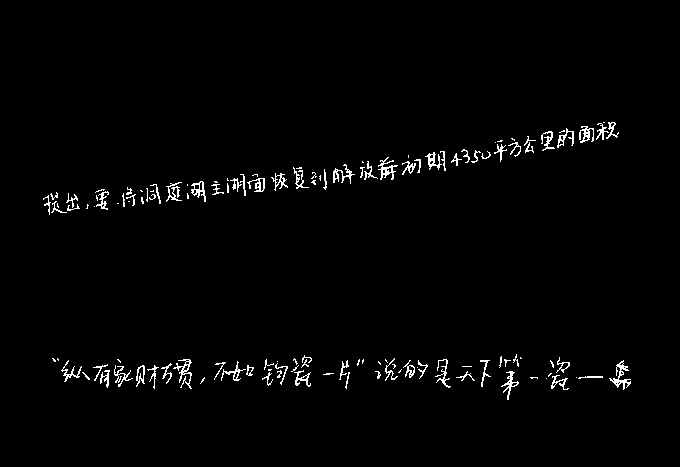 提出,要将洞庭湖主湖面恢复到解放前初期4350平方公里的面积
“纵有家财万贯,不如钧瓷一片”说的是天下第一瓷——